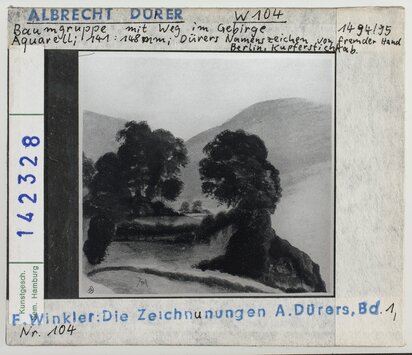 ALBRECHT DÜRER W 104
Baumgruppe mit Weg im Gebirge 1494/95
Aquarell; 141:148mm; Dürers Namenszeichen von fremder Hand
Berlin, Kupferstichkab.
142328
Kunstgesch.
Sem. Hamburg
F. Winkler: Die Zeichnungen A. Dürers, Bd. 1,
Nr. 104